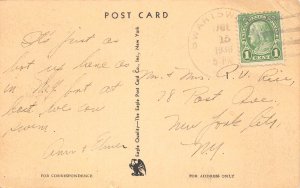 POST CARD
SWARTSW
JUL
15
1 CENT 1
It's just as
hot up here as
in the but at
least we can
swim.
Mr. & Mrs. A. V. Rice,
78 Post Ave.
New York City,
N.Y.
Eagle Quality—The Eagle Post Card Co., Inc., New York
FOR CORRESPONDENCE
FOR ADDRESS ONLY